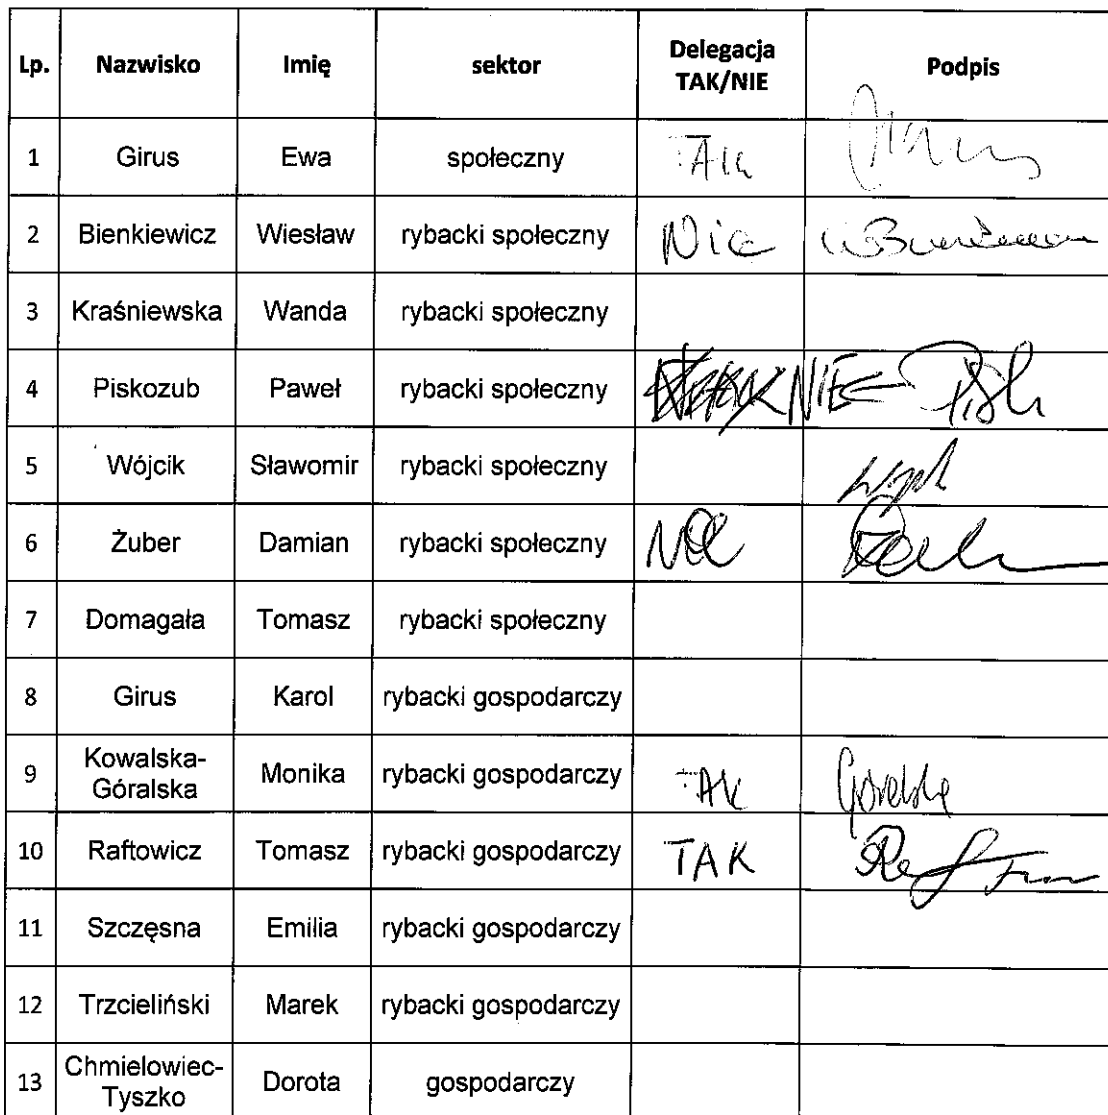 Lp. Nazwisko Imię sektor Delegacja TAK/NIE Podpis
1 Girus Ewa społeczny TAK
2 Bienkiewicz Wiesław rybacki społeczny Nie
3 Kraśniewska Wanda rybacki społeczny
4 Piskozub Paweł rybacki społeczny NIE
5 Wójcik Sławomir rybacki społeczny
6 Żuber Damian rybacki społeczny NIE
7 Domagała Tomasz rybacki społeczny
8 Girus Karol rybacki gospodarczy
9 Kowalska-Góralska Monika rybacki gospodarczy TAK Góralska
10 Raftowicz Tomasz rybacki gospodarczy TAK
11 Szczęsna Emilia rybacki gospodarczy
12 Trzcieliński Marek rybacki gospodarczy
13 Chmielowiec-Tyszko Dorota gospodarczy